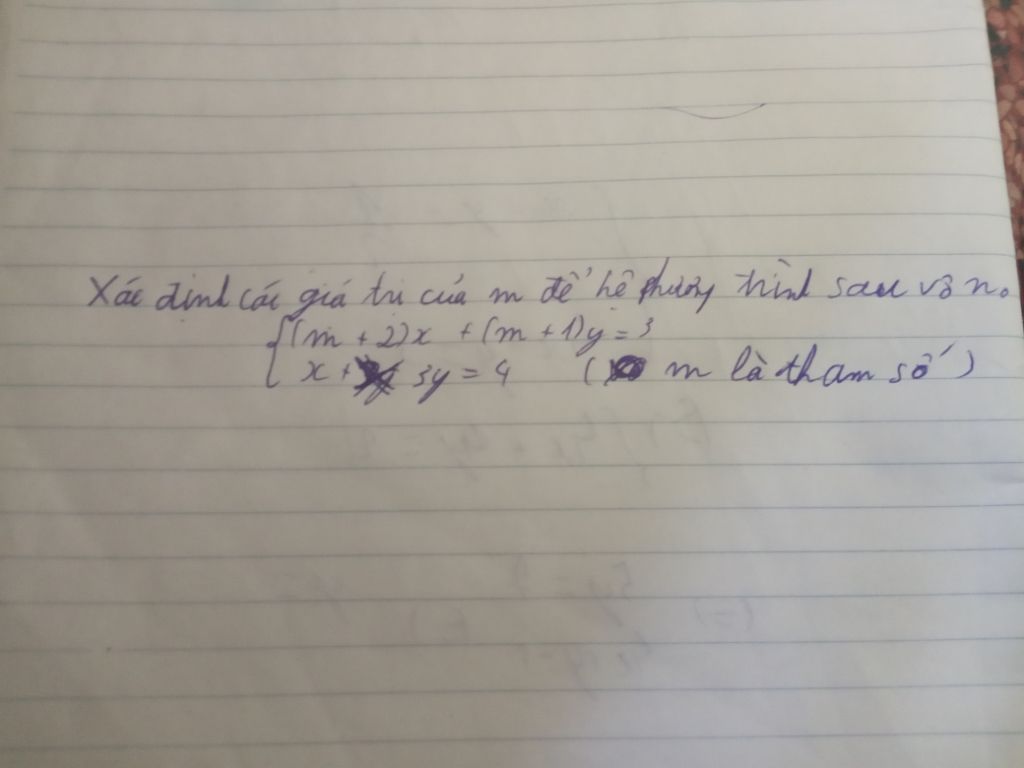 Xác định các giá trị của m để hệ phương trình sau vô n.
(m + 2)x + (m + 1)y = 3
x + 3y = 4 ( m là tham số )